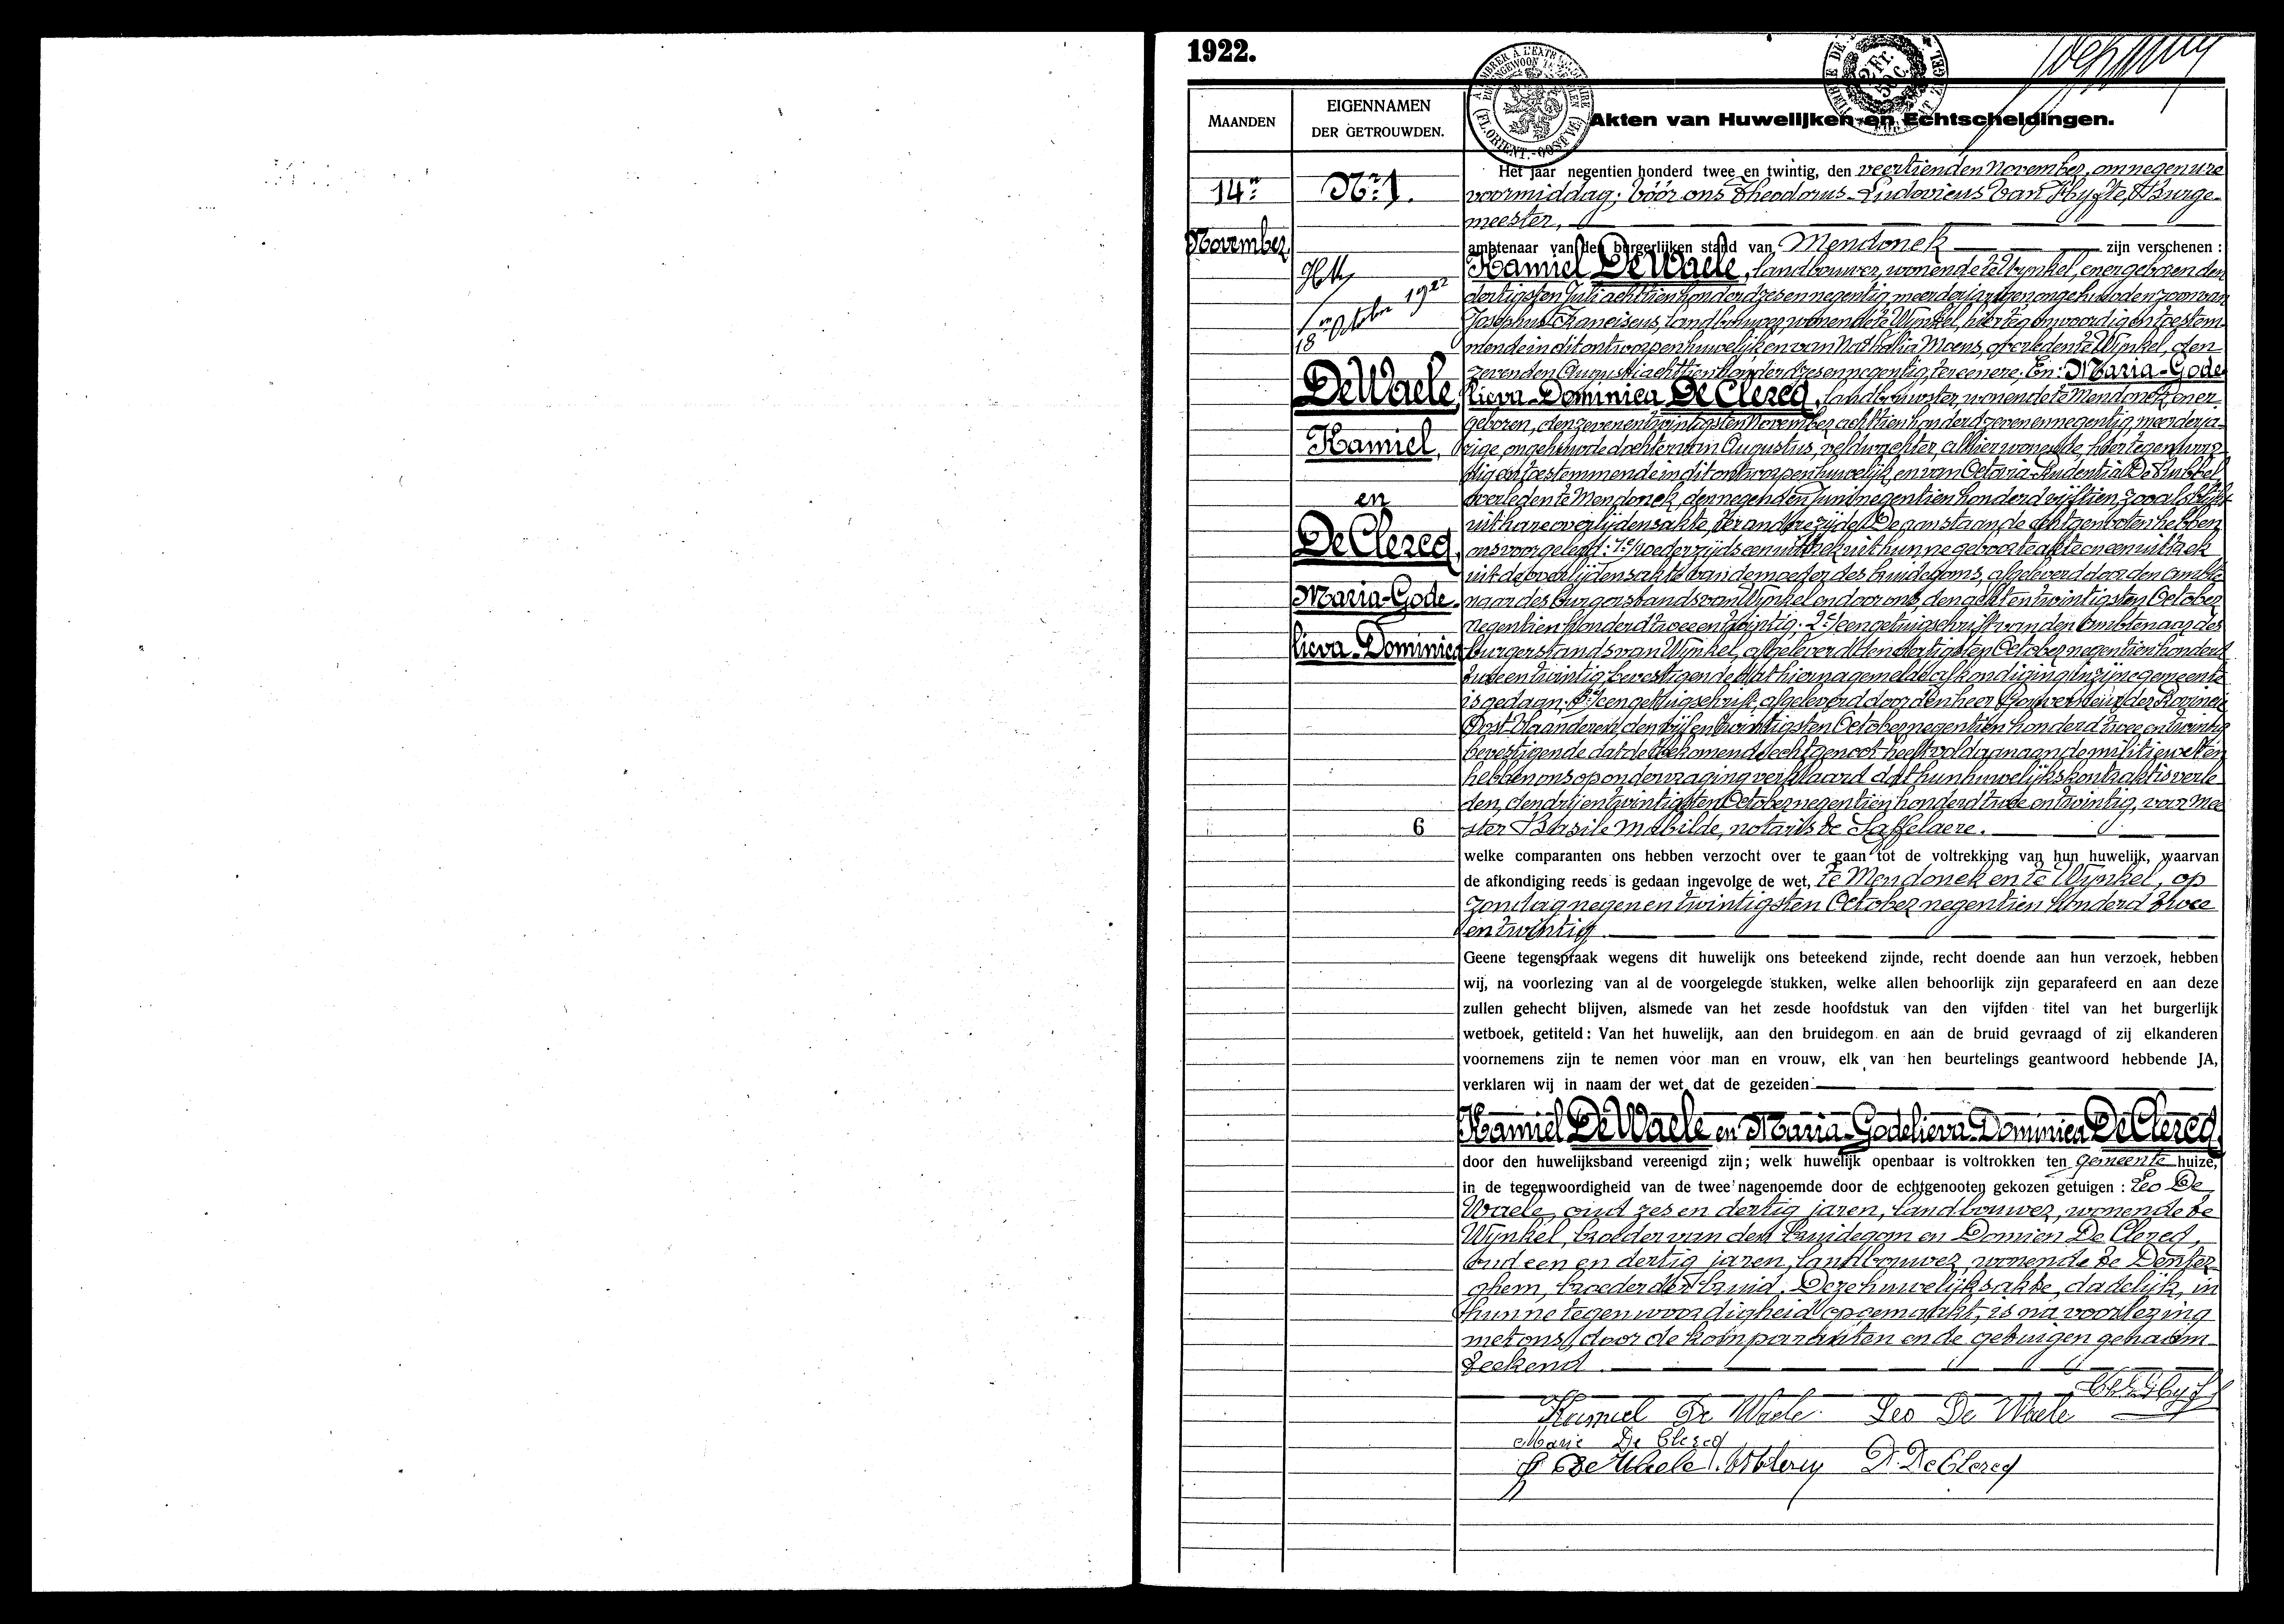 1922.
MAANDEN
EIGENNAMEN
DER GETROUWDEN.
Akten van Huwelijken en Echtscheidingen.
14n
November
No 1.
18 October 1922
De Waele,
Kamiel,
en
De Clercq,
Maria-Gode-
lieva-Dominica
6
Het jaar negentien honderd twee en twintig, den veertienden November, om negen ure
voormiddag; vóór ons Theodorus-Ludovicus Van Hyfte, Burge-
meester,
ambtenaar van den burgerlijken stand van Mendonck zijn verschenen :
Kamiel De Waele, landbouwer, wonende te Wynkel, en er geboren den
dertigsten Juli achttien honderd zes en negentig, meerderjarigen ongehuwden zoon van
Josephus Franciscus, landbouwer, wonende te Wynkel, hier tegenwoordig en toestem-
mende in dit ontworpen huwelijk en van Nathalia Moens, overleden te Wynkel, den
zevenden Augusti achttien honderd zes en negentig, ter eenere; En: Maria-Gode-
lieva-Dominica De Clercq, landbouwster, wonende te Mendonck, en er
geboren, den zeven en twintigsten November achttien honderd zeven en negentig, meerderja-
rige, ongehuwde dochter van Augustus, veldwachter, alhier wonende, hier tegenwoor-
dig en toestemmende in dit ontworpen huwelijk, en van Octavia-Prudentia De Bubbel
overleden te Mendonck, den negenden Juni negentien honderd vijftien, zooals blijkt
uit hare overlijdensakte, ter andere zijde. De aanstaande echtgenooten hebben
ons voorgelegd: 1e/ wederzijds een uittrek uit hunne geboorteakte en een uittrek
uit de overlijdensakte van de moeder des bruidegoms, afgeleverd door den ambte-
naar des Burgerstands van Wynkel en door ons, den acht en twintigsten October
negentien honderd twee en twintig; 2e/ een getuigschrift van den Ambtenaar des
burgerstands van Wynkel, afgeleverd den dertigsten October negentien honderd
twee en twintig, bevestigende dat hiernagemelde afkondiging in zijne gemeente
is gedaan; 3e/ een getuigschrift, afgeleverd door den heer Gouverneur der Provincie
Oost-Vlaanderen, den vijf en twintigsten October negentien honderd twee en twintig
bevestigende dat de toekomende echtgenoot heeft voldaan aan de militiewetten,
hebben ons op ondervraging verklaard dat hun huwelijkskontrakt is verle-
den, den drij en twintigsten October negentien honderd twee en twintig, voor mee-
ster Basile Mabilde, notaris te Saffelaere.
welke comparanten ons hebben verzocht over te gaan tot de voltrekking van hun huwelijk, waarvan
de afkondiging reeds is gedaan ingevolge de wet, te Mendonck en te Wynkel, op
zondag negen en twintigsten October negentien honderd twee
en twintig
Geene tegenspraak wegens dit huwelijk ons beteekend zijnde, recht doende aan hun verzoek, hebben
wij, na voorlezing van al de voorgelegde stukken, welke allen behoorlijk zijn geparafeerd en aan deze
zullen gehecht blijven, alsmede van het zesde hoofdstuk van den vijfden titel van het burgerlijk
wetboek, getiteld: Van het huwelijk, aan den bruidegom en aan de bruid gevraagd of zij elkanderen
voornemens zijn te nemen voor man en vrouw, elk van hen beurtelings geantwoord hebbende JA,
verklaren wij in naam der wet dat de gezeiden
Kamiel De Waele en Maria-Godelieva-Dominica De Clercq,
door den huwelijksband vereenigd zijn; welk huwelijk openbaar is voltrokken ten gemeente huize,
in de tegenwoordigheid van de twee nagenoemde door de echtgenooten gekozen getuigen : Leo De
Waele, oud zes en dertig jaren, landbouwer, wonende te
Wynkel, broeder van den bruidegom en Domien De Clercq,
oud een en dertig jaren, landbouwer, wonende te Denter-
ghem, broeder der bruid. Deze huwelijksakte, dadelijk, in
hunne tegenwoordigheid opgemaakt, is na voorlezing
met ons, door de komparanten en de getuigen gehaam-
teekend.
Kamiel De Waele Leo De Waele
Marie De Clercq
De Waele D. De Clercq